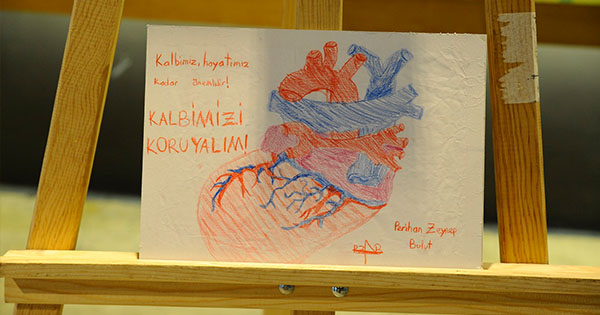 Kalbimizi, hayatımız
kadar önemlidir!
KALBİMİZİ
KORUYALIM!
Perihan Zeynep
Bulut
PZB